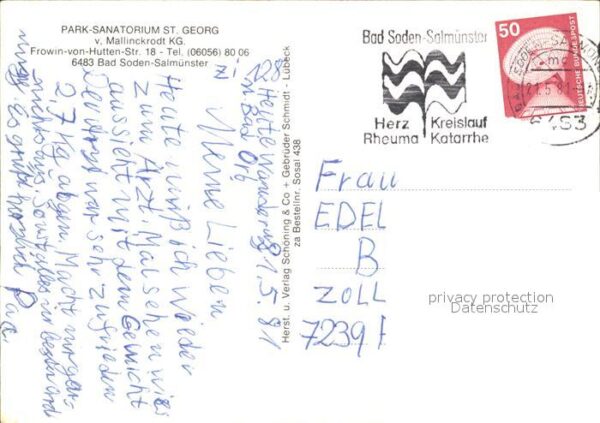 PARK-SANATORIUM ST. GEORG
v. Mallinckrodt KG.
Frowin-von-Hutten-Str. 18 - Tel. (06056) 80 06
6483 Bad Soden-Salmünster
Herst. u. Verlag Schöning & Co + Gebrüder Schmidt - Lübeck
za Bestellnr. Sosal 438
Heute Wanderung
in Bad Orb
21.5.81
Meine Lieben
Heute muß ich wieder
zum Arzt. Mal sehen wies
aussieht mit dem Gewicht
Der Arzt war sehr zufrieden
2,7 Kg abgen. Macht
Bad Soden-Salmünster
Herz Kreislauf
Rheuma Katarrhe
50
DEUTSCHE BUNDESPOST
21.5.81
6483
Frau
EDEL
B
ZOLL
7239
privacy protection
Datenschutz